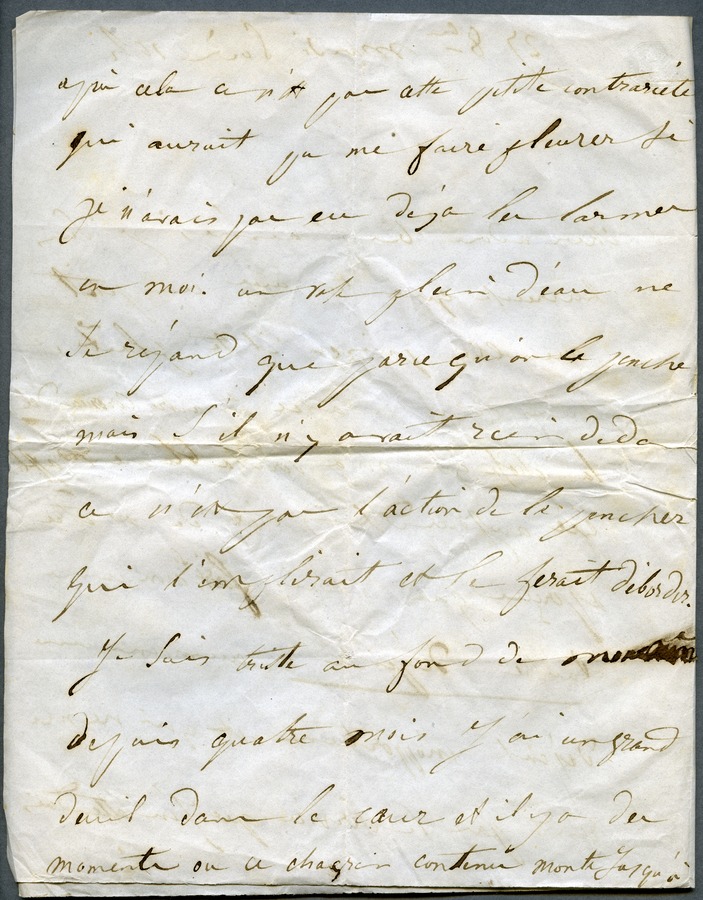 après cela ce n'est pas cette petite contrariété
qui aurait pu me faire pleurer si
je n'avais pas eu déja les larmes
en moi. un vase plein d'eau ne
se répand que parce qu'on le penche
mais s'il n'y avait rien dedans
ce n'est pas l'action de le pencher
qui l'emplirait et le ferait déborder.
Je suis triste au fond de mon
depuis quatre mois j'ai un grand
deuil dans le cœur et il y a des
moments ou ce chagrin contenu monte jusqu'à